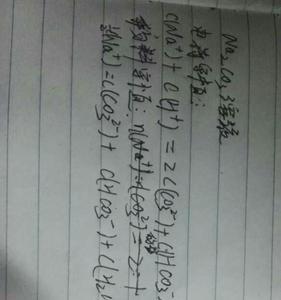 Na₂CO₃溶液
电荷守恒:
c(Na⁺)+c(H⁺)=2c(CO₃²⁻)+c(HCO₃⁻
物料守恒:n(Na⁺):n(CO₃²⁻)=2:1
c(Na⁺)=c(CO₃²⁻)+c(HCO₃⁻)+c(H₂